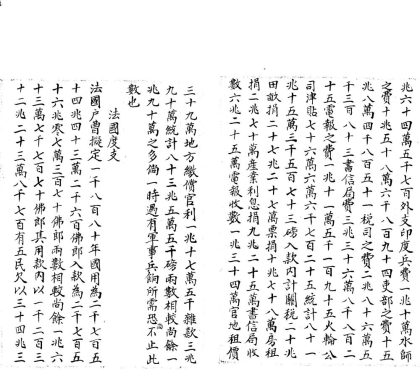 兆六十四萬五千七百外支印度兵費一兆十萬水師
之費十兆五十八萬六千八百二十四吏部之費十五
兆八萬四千八百五十一税司之費二兆八十六萬五
千三百八十三書信局費三兆三十六萬八千八百二
十五電報之費一兆十一萬五千一百九十五火輪公
司津貼七十六萬六千七百二十五統計八十一
兆十五萬二千五百七十三磅入款内計關税二十兆
田畝捐二十七兆二十七萬票捐十兆七十八萬房租
捐二兆七十萬產業利息捐九兆二十五萬書信局收
數六兆二十五萬電報收數一兆三十四萬官地租價
三十九萬地方繳價官利一兆十七萬五千雜款三兆
九十萬統計八十三兆五萬五千磅兩數相較尚餘一
兆九十萬之多倘一時遇有軍事兵餉所需恐不止此
數也
法國度支
法國户曹擬定一千八百八十年國用為二千七百五
十四兆四十三萬二千六百佛郎入款為二千七百五
十六兆零七萬三百七十佛郎兩數相較尚餘一兆六
十三萬七千七百七十佛郎其用款内以一千二百三
十二兆二十三萬八千七百有五民欠以三十四兆三